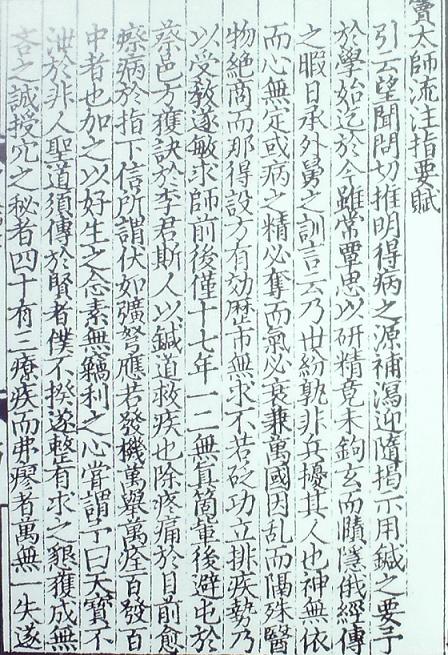 竇太師流注指要賦
引云望聞問切推明得病之源補瀉迎隨揭示用鍼之要予
於學始迄於今雖常覃思以研精竟未鉤玄而賾隱俄經傳
之暇日承外舅之訓言云乃世紛孰非兵擾其人也神無依
而心無定或病之精必奪而氣必衰兼萬國因乱而隔殊醫
物絶商而那得設方有効歷市無求不若砭功立排疾勢乃
以受教遂敏求師前後僅十七年一二無真箇軰後避屯於
蔡邑方獲訣於李君斯人以鍼道救疾也除疼痛於目前愈
瘵病於指下信所謂伏如彍弩應若發機萬舉萬痊百發百
中者也加之以好生之念素無竊利之心甞謂予曰天寶不
泄於非人聖道須傳於賢者僕不揆遂整有求之懇獲成無
吝之誠授穴之秘者四十有三療疾而弗瘳者萬無一失遂